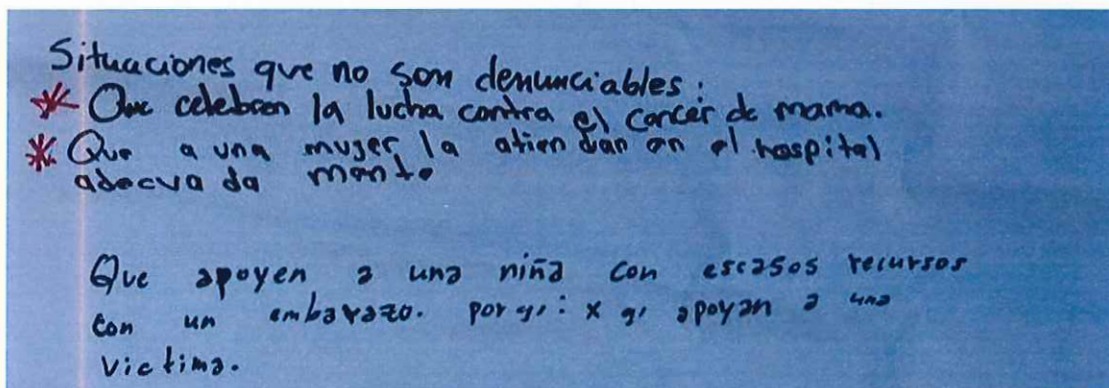 Situaciones que no son denunciables:
* Que celebren la lucha contra el cancer de mama.
* Que a una mujer la atiendan en el hospital
adecuada mente
Que apoyen a una niña con escasos recursos
con un embarazo. por q': x q' apoyan a una
victima.